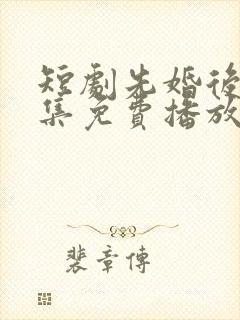 短劇先婚後
集免費播放
裴章傳